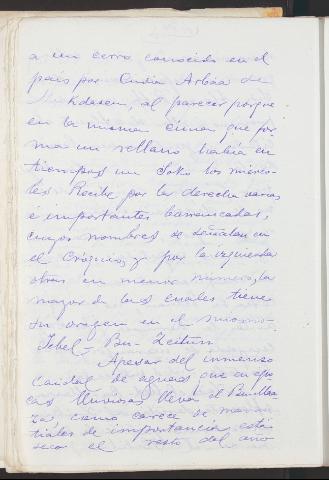 a un cerro conocido en el
pais por Cudia Arbáa de
al parecer porque
en la misma cima que for
ma un rellano habia en
tiempos un Soko los miérco
les Recibe por la derecha varias
e importantes barrancadas,
cuyos nombres se señalan en
el Croquis, y por la izquierda
otras en menor número, la
mayor de las cuales tiene
su origen en el mismo
Jebel - Bu - Zeitun
Apesar del inmenso
Caudal de aguas que en epo
cas lluviosas lleva el
como carece de manan
tiales de importancia está
seco el resto del año